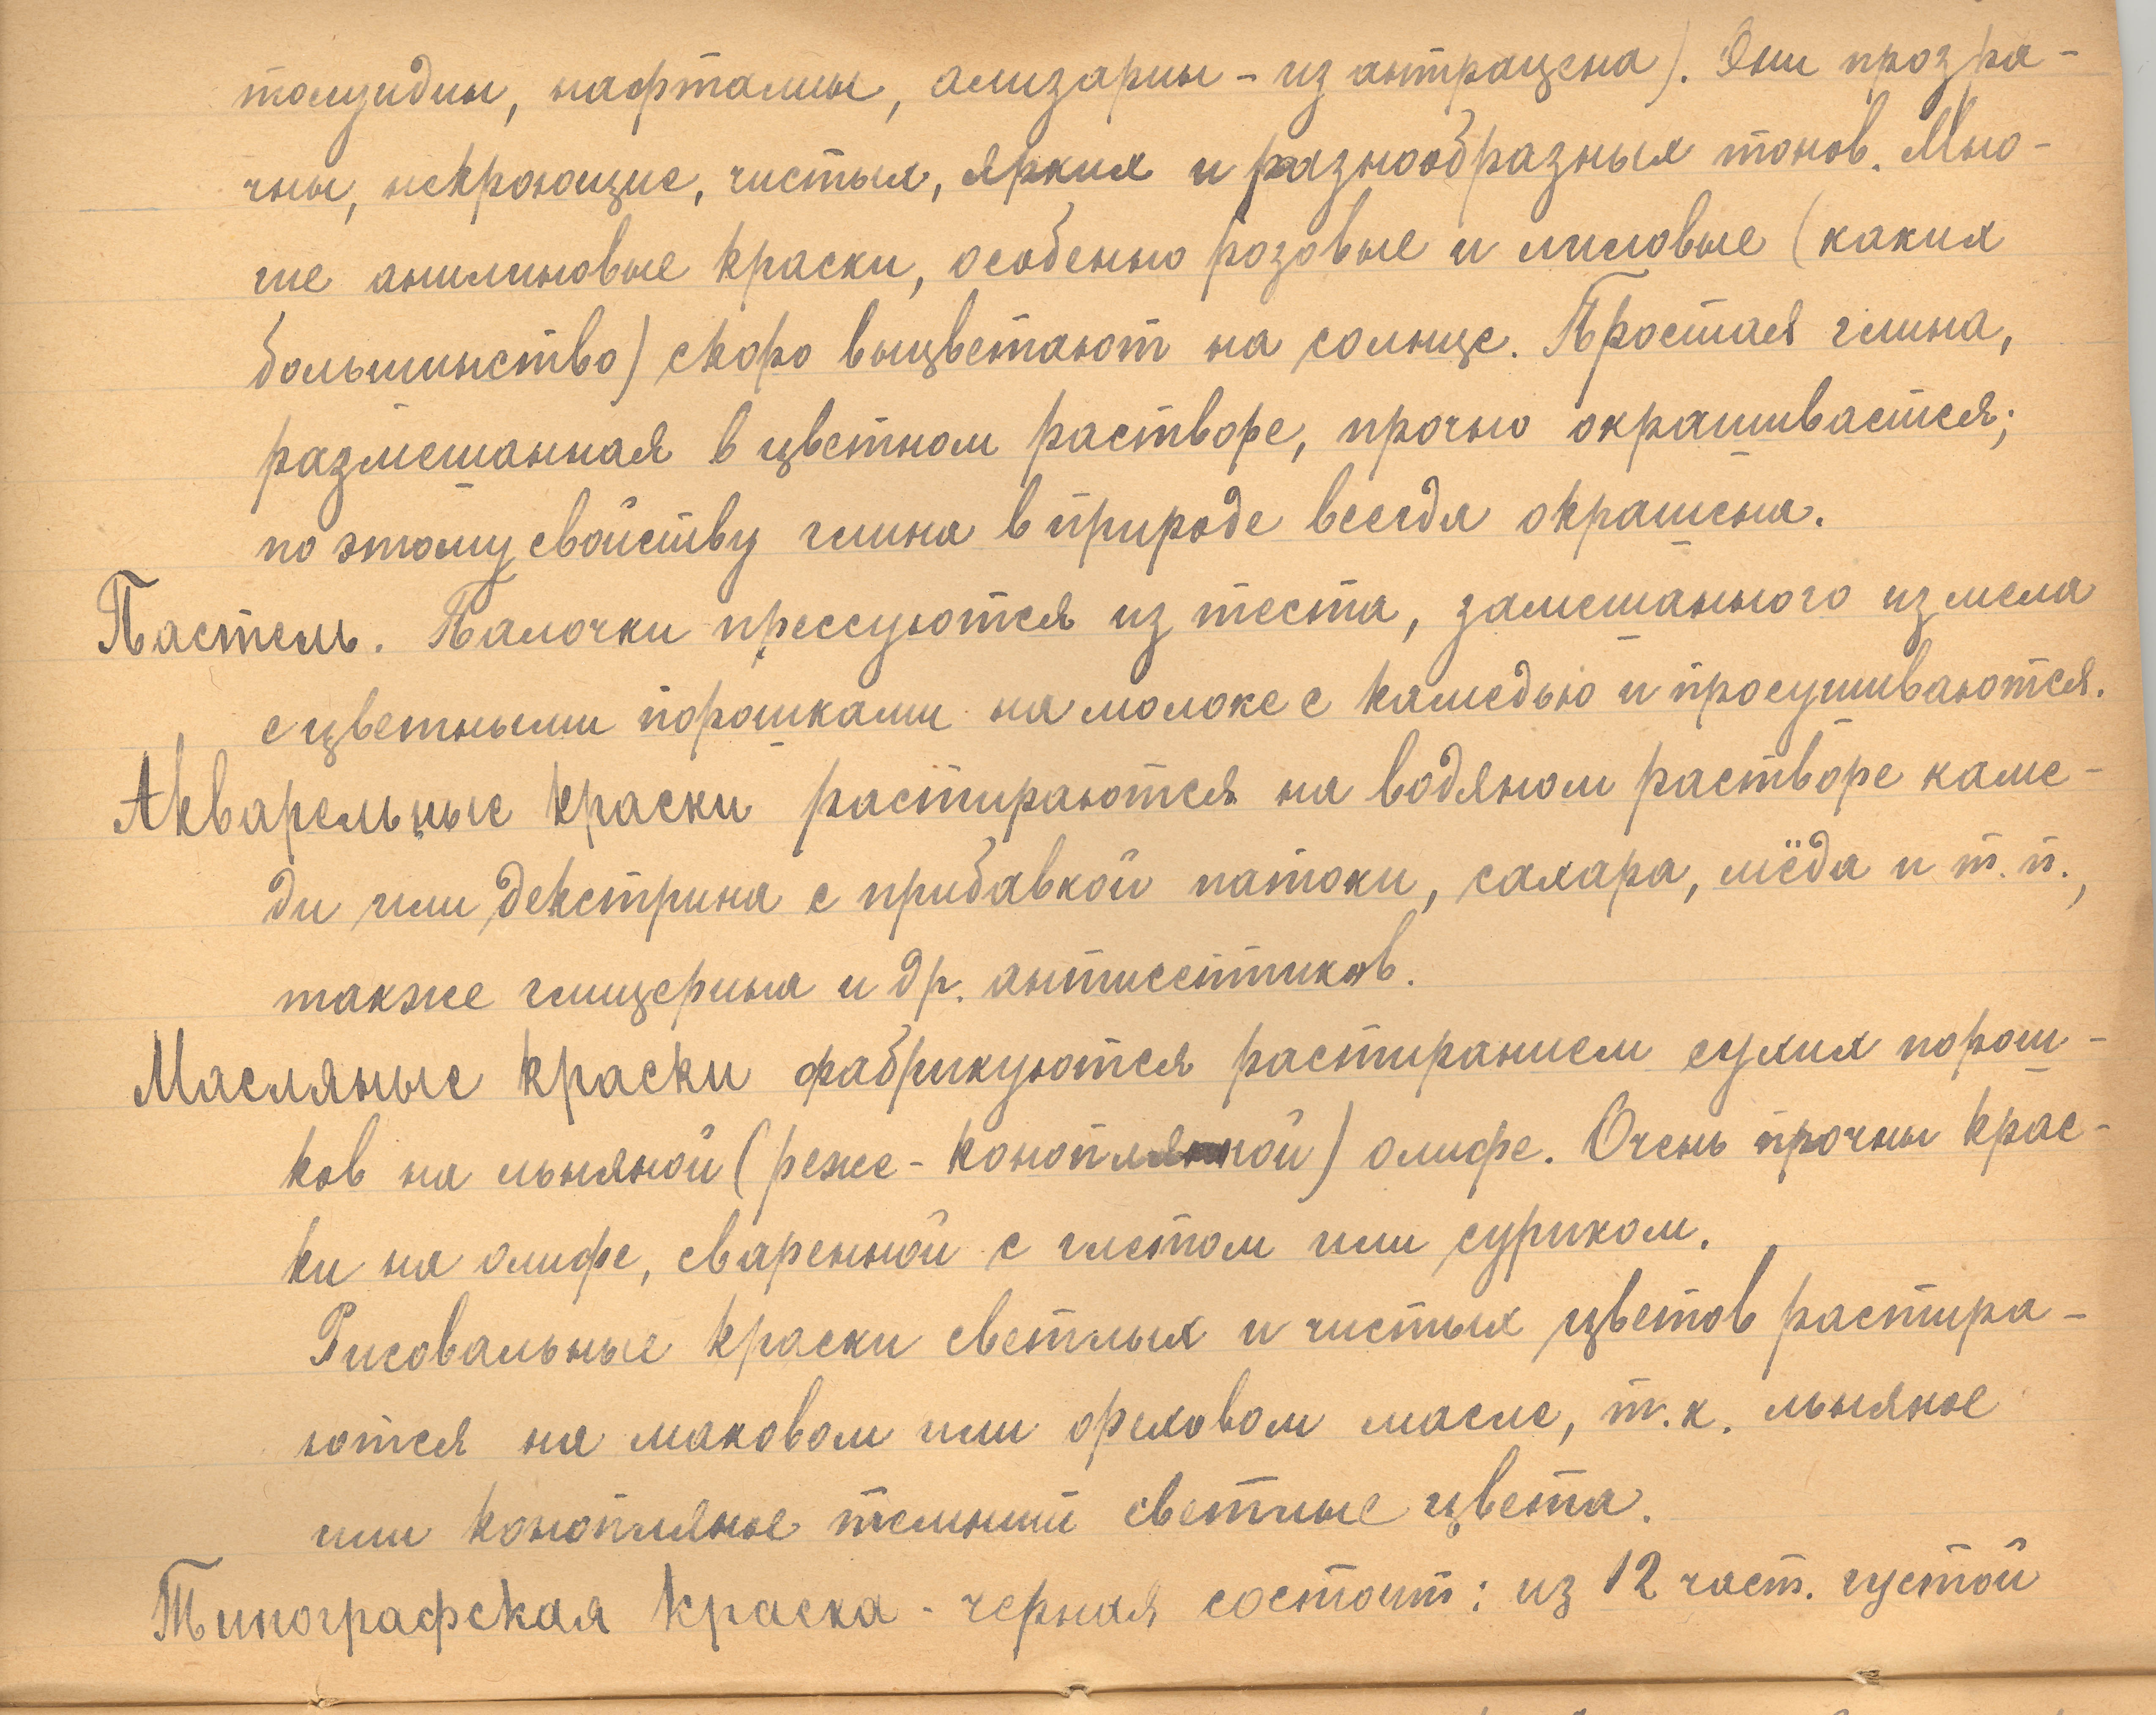 толуидин, нафталин, ализарин - из антрацена). Они прозра-
чны, некроющие, чистых, ярких и разнообразных тонов. Мно-
гие анилиновые краски, особенно розовые и лиловые (каких
большинство) скоро выцветают на солнце. Простая глина,
размешанная в цветном растворе, прочно окрашивается;
по этому свойству глина в природе всегда окрашена.
Пастель. Палочки прессуются из теста, замешанного из мела
с цветными порошками на молоке с камедью и просушиваются.
Акварельные краски растираются на водяном растворе каме-
ди или декстрина с прибавкой патоки, сахара, мёда и т.п.,
также глицерина и др. антисептиков.
Масляные краски фабрикуются растиранием сухих порош-
ков на льняной (реже - конопляной) олифе. Очень прочны крас-
ки на олифе, сваренной с глетом или суриком.
Рисовальные краски светлых и чистых цветов растира-
ются на маковом или ореховом масле, т.к. льняное
или конопляное темнит светлые цвета.
Типографская краска - черная состоит: из 12 част. густой